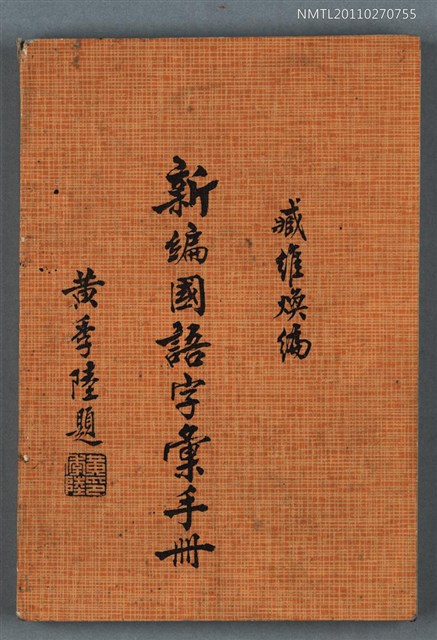 NMTL20110270755
臧維煥編
新編國語字彙手冊
黃季陸題